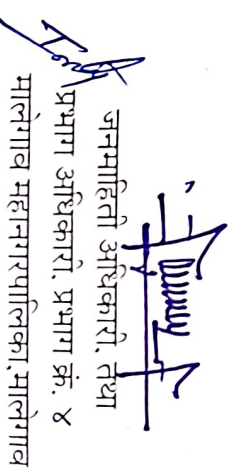 जनमाहिती अधिकारी. तथा
प्रभाग अधिकारी. प्रभाग क्रं. ४
मालेगाव महानगरपालिका.मालेगाव